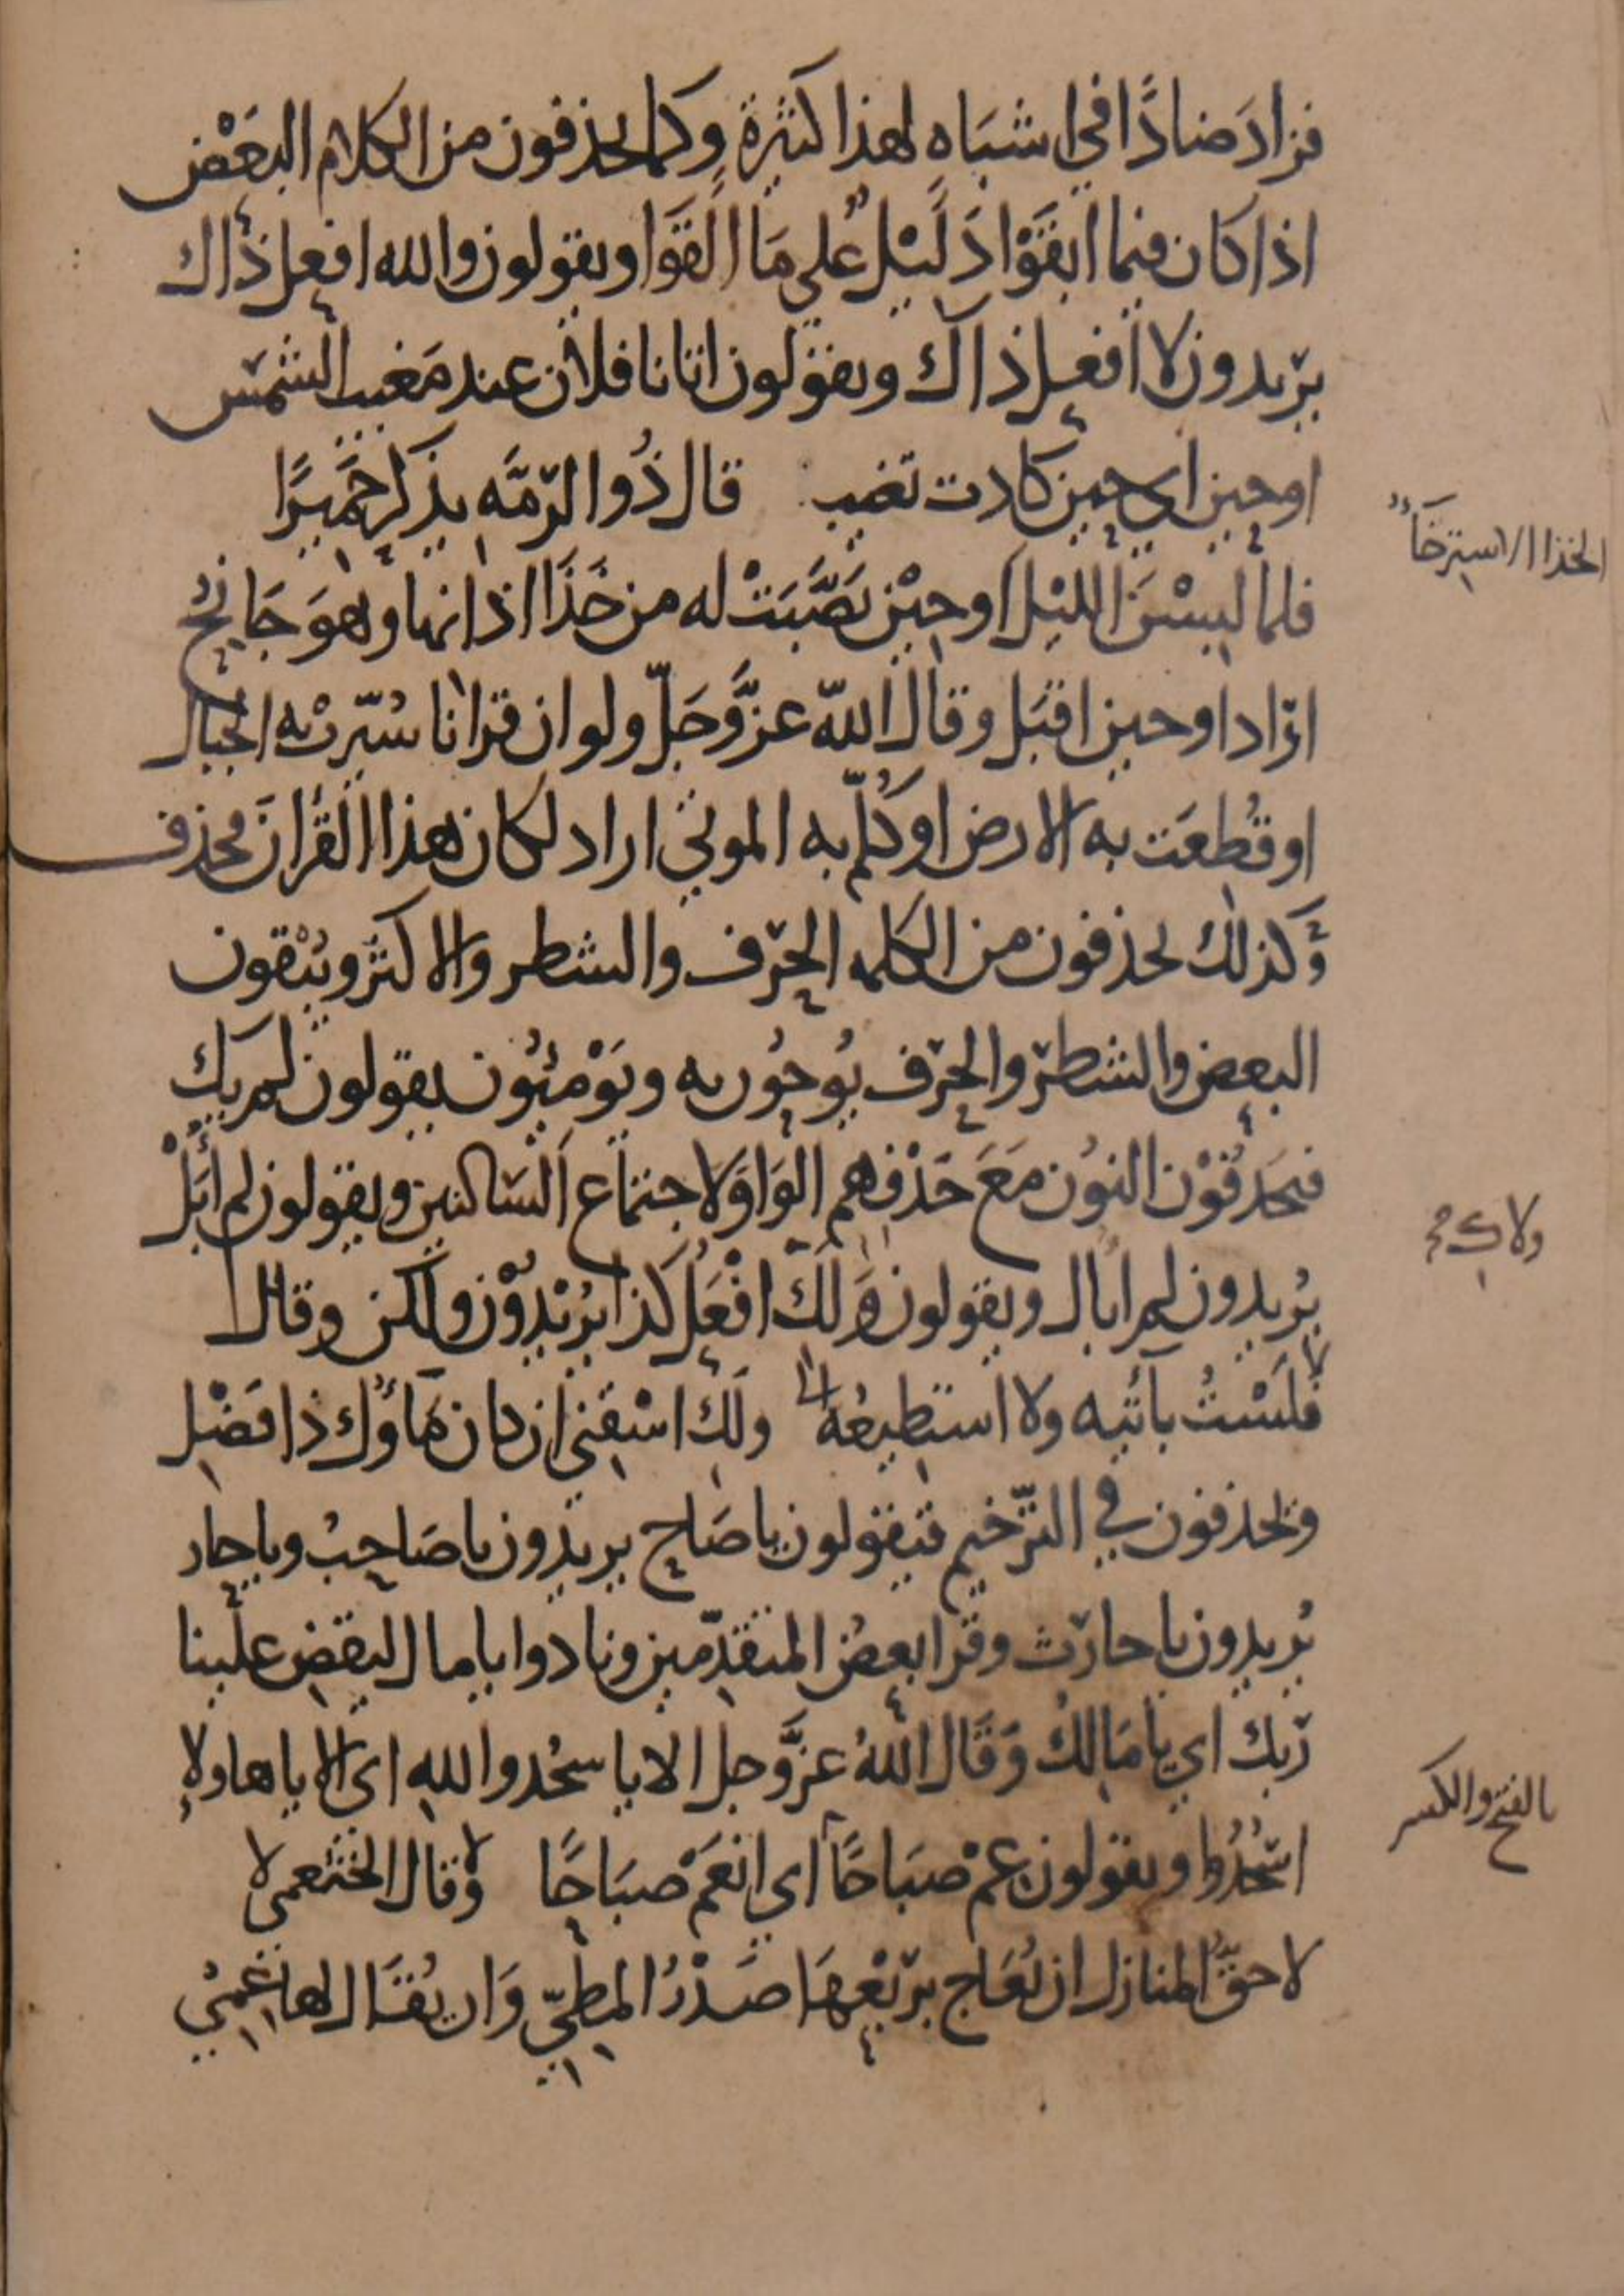 فزاد ضادًا في اشباه لهذا كثيرة وكما يحذفون من الكلام البعض
اذا كان فيما ابقَوْا دَليْل علي مَا القَوا ويقولون والله افعل ذاك
يريدون لا افعل ذاك ويقولون اتانا فلان عند مَغيب الشمس
او حين اي حين كادت تغيب قال ذُوا الرّمّه يذكر حَمِيرًا
الخذا الاسترخَاء
فلما لبِسْنَ الليْل اَو حِيْن نصَّبَتْ له من خَذَا اذانها وهوَ جَانِحُ
اراد او حين اقبَل وقال اللّه عزَّوَجَلّ ولو ان قرانا سُيّرتْ به الجبال
او قُطعَت به الارض او كُلّم به الموتي اراد لكان هذا القُرانَ فحذف
وَكذلك يحذفون من الكلمه الحرْف والشطر والاكثر ويُبْقون
البعض والشطر والحرف يُوحُون به ويَوْمئِون يقولون لم يك
فيحَذفُوْن النوُن مَعَ حَذْفِهم الوَاوَ لاجتماع السَاكنين ويقولون لم اُبَلْ
ولاك
يُريدون لم ابال ويقولون وَلَكَ افْعَل كذا يُرْيْدوُنْ ولكن وقال
فلَسْتُ بآتيه ولا استطيعُهُ ولَكَ اسْقِني ان كان مَاؤُك ذا فَضْل
ويحذفون في الترّخيم فيقولون يا صَاحِ يريدون يا صَاحِبُ ويا حار
يُريدون يا حارث وقرا بعضُ المتقدّمين ونادوا يا مال ليقض علَينا
ربك اي يا مَالكُ وَقَال اللّهُ عزَّوجل الا يا سجُدوا للهِ اي الا يا هاولاءِ
بالفتح والكسر
اسجُدُوا ويقولون عمْ صبَاحًا اي انعَمْ صبَاحًا وقال الخثعمي
لا حقَّ المنازل ان تُعَاج برَبْعِهَا صَدْرُ المطِيّ وَان يُقَال لها عِمِيْ